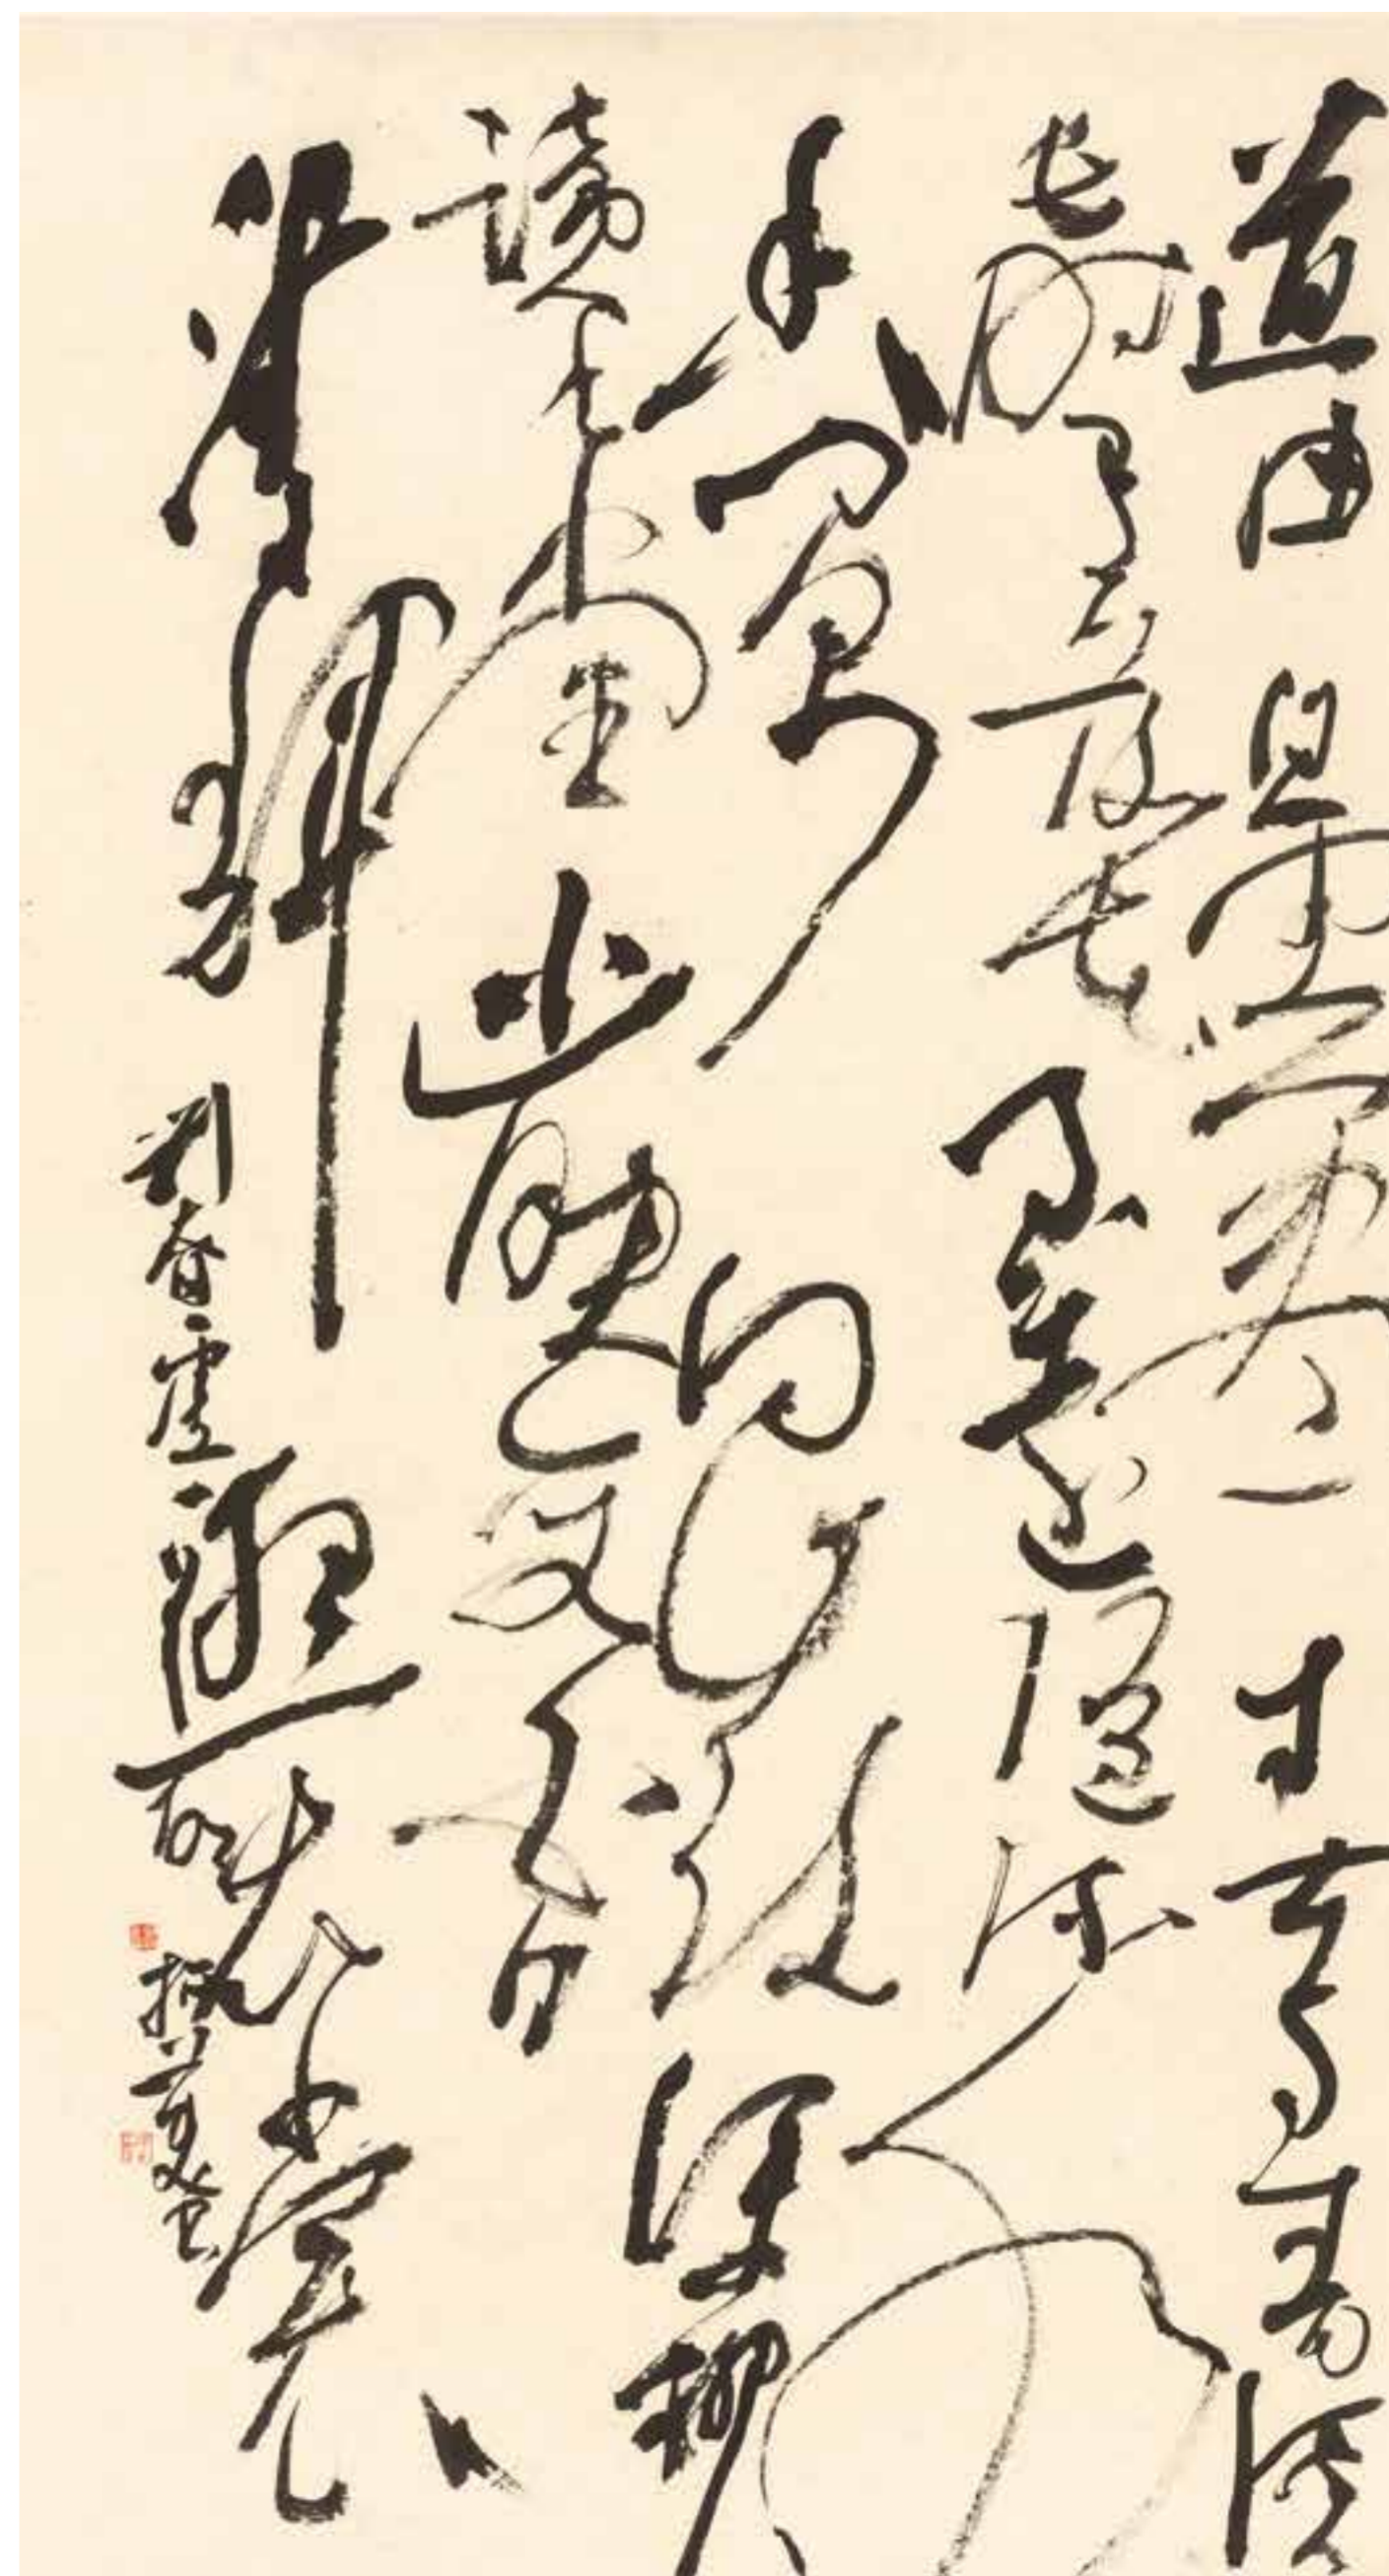 道由白雲盡春与青溪
長時有落花至遠隨流水
香閒門向山路深柳
讀書堂幽映每白日
清輝照衣裳
劉眘虛